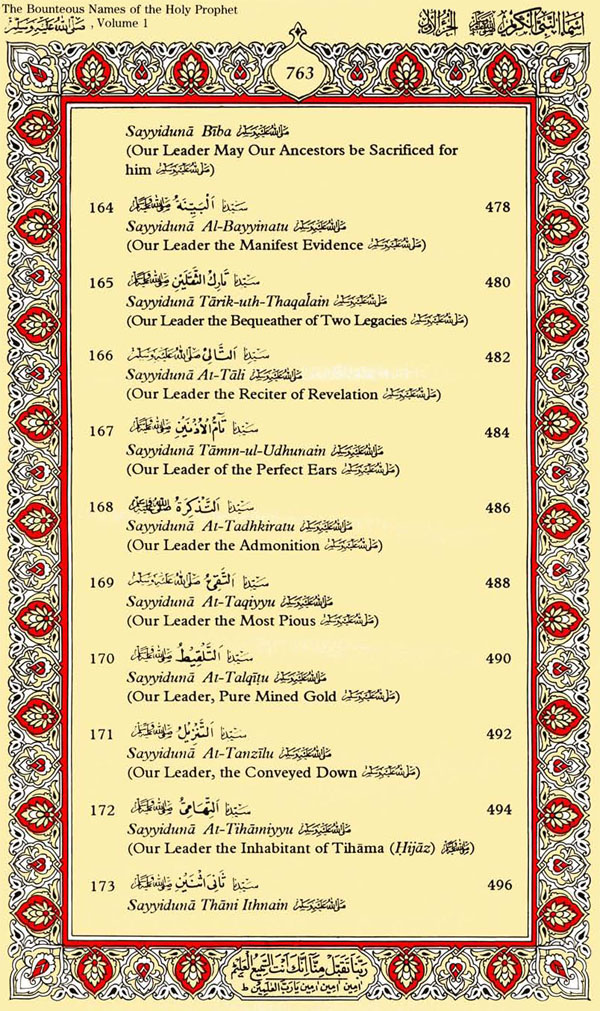 The Bounteous Names of the Holy Prophet
صلى الله عليه وسلم , Volume 1
اسماء النبي الكريم صلى الله عليه وسلم الجزء الاول
763
Sayyidunā Bība صلى الله عليه وسلم
(Our Leader May Our Ancestors be Sacrificed for
him صلى الله عليه وسلم)
164 سَيِّدُنَا اَلْبَيِّنَةُ صلى الله عليه وسلم 478
Sayyidunā Al-Bayyinatu صلى الله عليه وسلم
(Our Leader the Manifest Evidence صلى الله عليه وسلم)
165 سَيِّدُنَا تَارِكُ الثَّقَلَيْنِ صلى الله عليه وسلم 480
Sayyidunā Tārik-uth-Thaqalain صلى الله عليه وسلم
(Our Leader the Bequeather of Two Legacies صلى الله عليه وسلم)
166 سَيِّدُنَا اَلتَّالِيْ صلى الله عليه وسلم 482
Sayyidunā At-Tāli صلى الله عليه وسلم
(Our Leader the Reciter of Revelation صلى الله عليه وسلم)
167 سَيِّدُنَا تَآمُّ الْاُذُنَيْنِ صلى الله عليه وسلم 484
Sayyidunā Tāmm-ul-Udhunain صلى الله عليه وسلم
(Our Leader of the Perfect Ears صلى الله عليه وسلم)
168 سَيِّدُنَا اَلتَّذْكِرَةُ صلى الله عليه وسلم 486
Sayyidunā At-Tadhkiratu صلى الله عليه وسلم
(Our Leader the Admonition صلى الله عليه وسلم)
169 سَيِّدُنَا اَلتَّقِيُّ صلى الله عليه وسلم 488
Sayyidunā At-Taqiyyu صلى الله عليه وسلم
(Our Leader the Most Pious صلى الله عليه وسلم)
170 سَيِّدُنَا اَلتَّلْقِيْطُ صلى الله عليه وسلم 490
Sayyidunā At-Talqīṭu صلى الله عليه وسلم
(Our Leader, Pure Mined Gold صلى الله عليه وسلم)
171 سَيِّدُنَا اَلتَّنْزِيْلُ صلى الله عليه وسلم 492
Sayyidunā At-Tanzīlu صلى الله عليه وسلم
(Our Leader, the Conveyed Down صلى الله عليه وسلم)
172 سَيِّدُنَا اَلتِّهَامِيُّ صلى الله عليه وسلم 494
Sayyidunā At-Tihāmiyyu صلى الله عليه وسلم
(Our Leader the Inhabitant of Tihama (Ḥijāz) صلى الله عليه وسلم)
173 سَيِّدُنَا ثَانِيَ اثْنَيْنِ صلى الله عليه وسلم 496
Sayyidunā Thāni Ithnain صلى الله عليه وسلم
رَبَّنَا تَقَبَّلْ مِنَّا اِنَّكَ اَنْتَ السَّمِيْعُ الْعَلِيْمُ
اٰمِيْن اٰمِيْن اٰمِيْن يَا رَبَّ الْعٰلَمِيْنَ ط